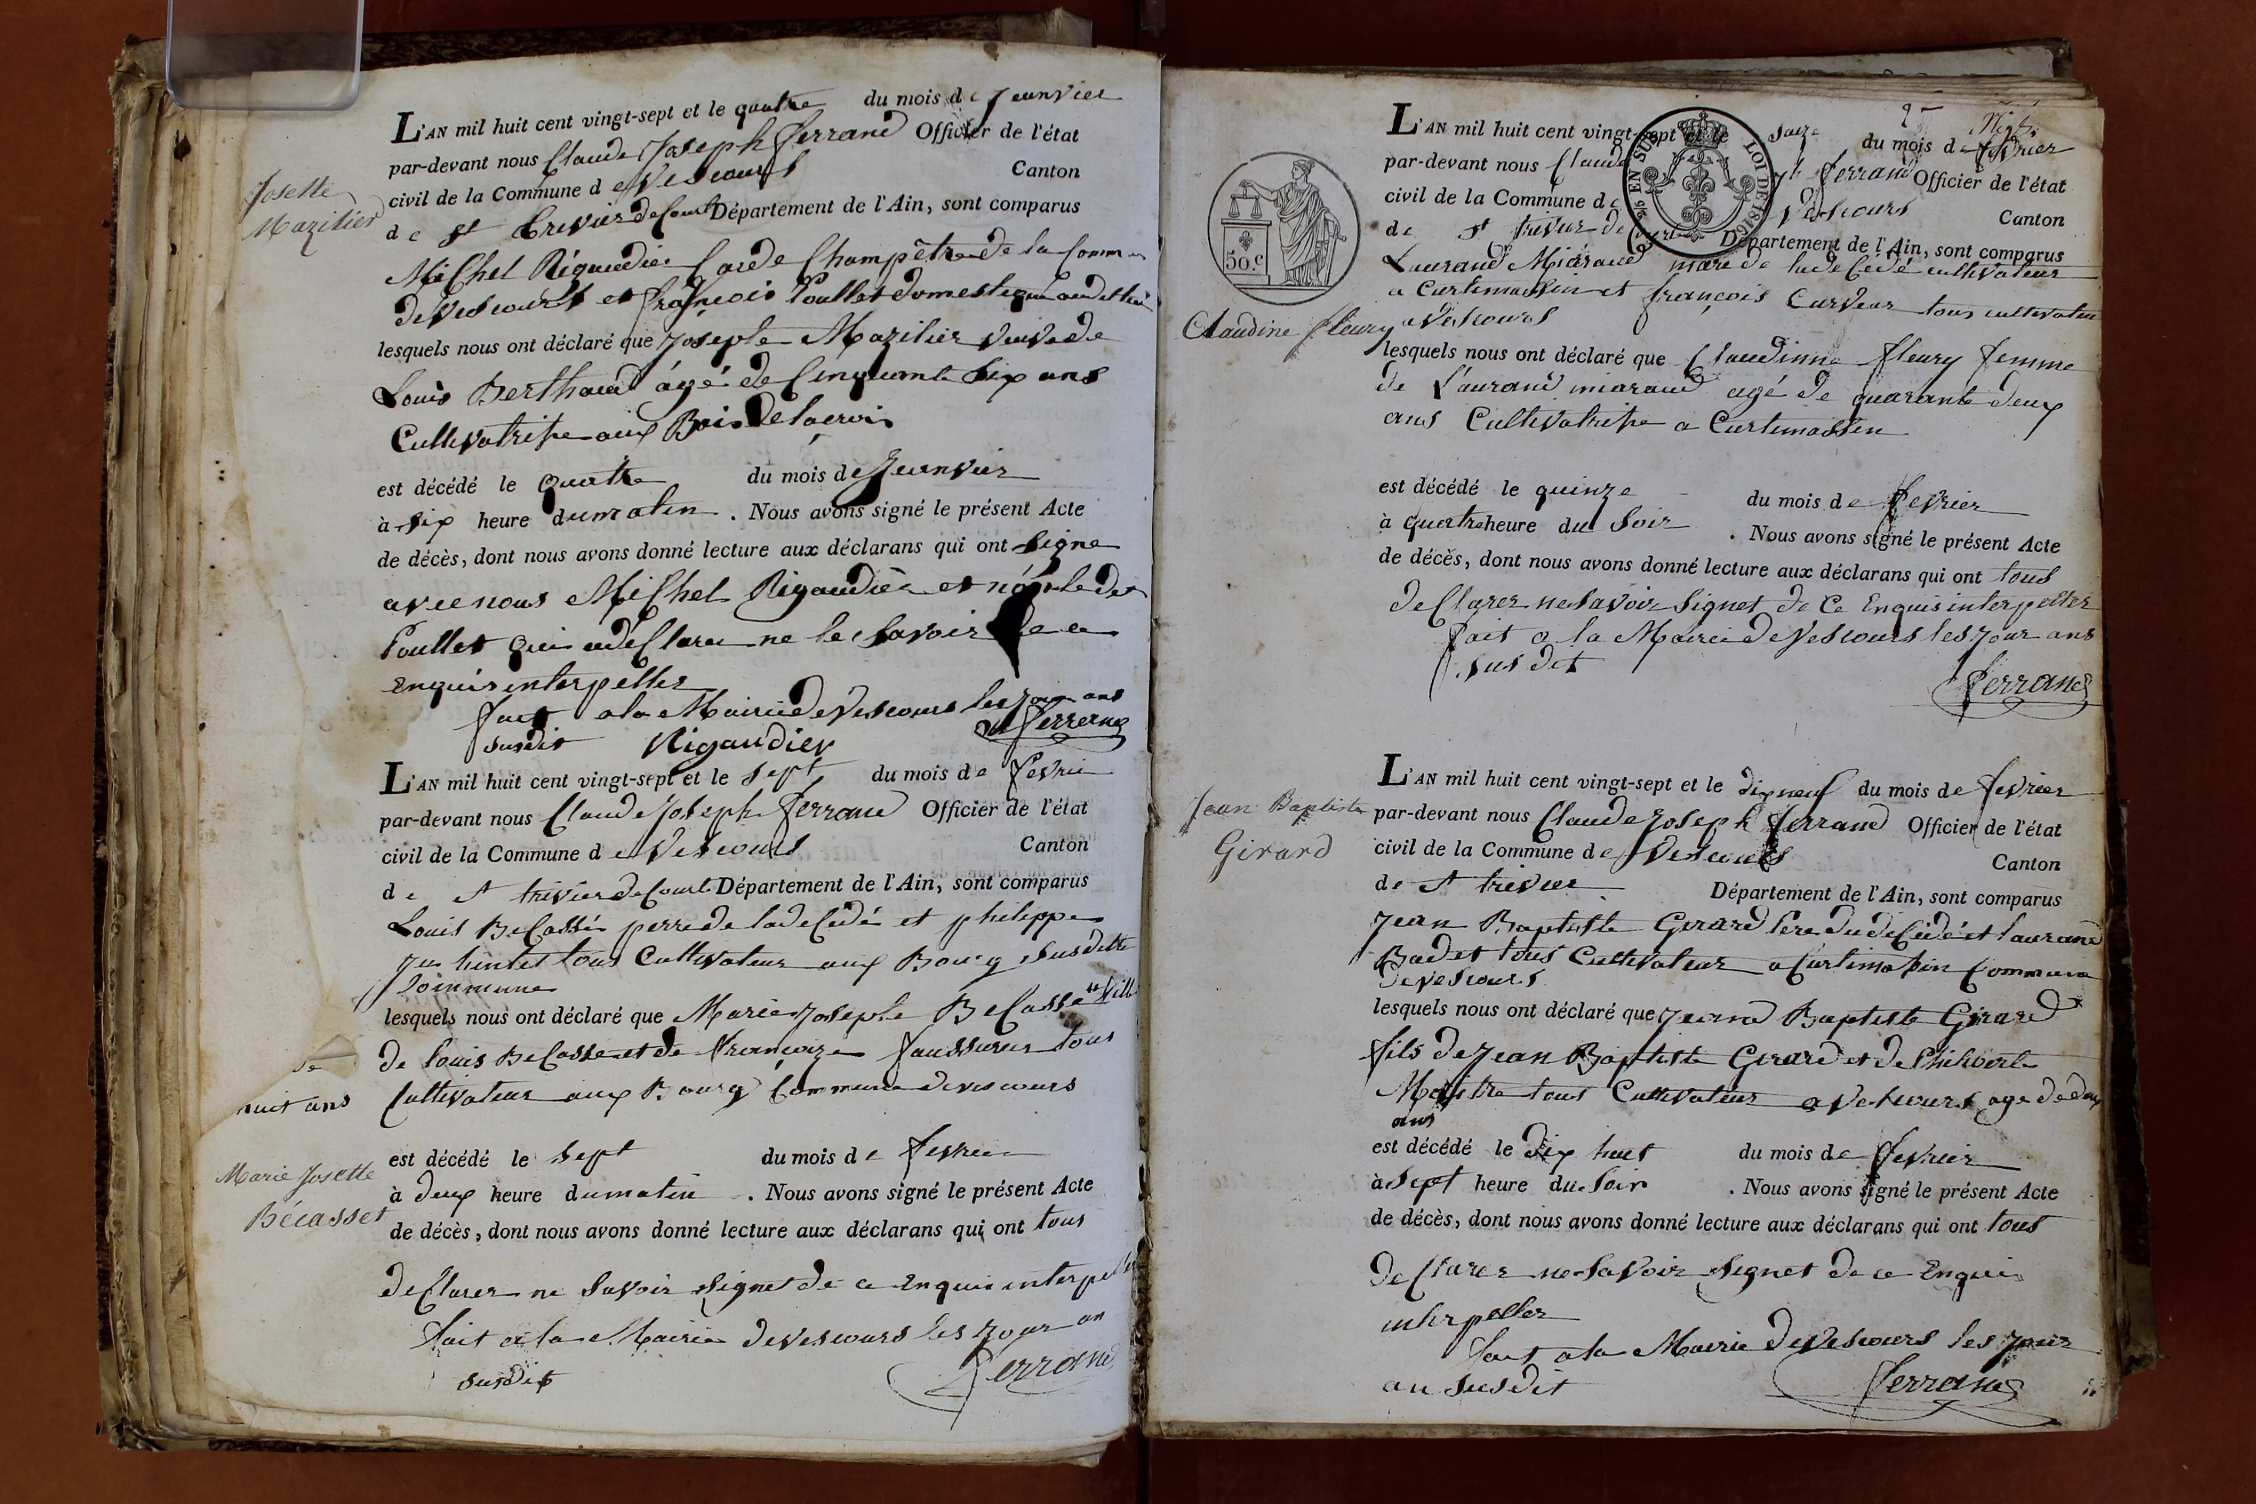 Josette
Mazilier
L'AN mil huit cent vingt-sept et le quatre du mois de Jeanvier
par-devant nous Claude Joseph Ferrand Officier de l'état
civil de la Commune de Vescours Canton
de st trevier de Court Département de l'Ain, sont comparus
Michel Rigaudier Garde Champêtre de la Commune
de Vescours et François Poullet domestique
lesquels nous ont déclaré que Josephe Mazilier veuve de
Louis Berthaud âgé de Cinquante Six ans
Cultivatrise aux Bois De lacroix
est décédé le quatre du mois de Jeanvier
à six heure du matin. Nous avons signé le présent Acte
de décès, dont nous avons donné lecture aux déclarans qui ont signe
avec nous Michel Rigaudier et non ledit
Poullet qui a déClarer ne le Savoir de ce
enquis interpeller
fait a la Mairie de Vescours les Jour ans
susdit Rigaudier Ferrand
L'AN mil huit cent vingt-sept et le sept du mois de fevrie
par-devant nous Claude Joseph Ferrand Officier de l'état
civil de la Commune de Vescours Canton
de st trivier de Court Département de l'Ain, sont comparus
Louis BeCassé perre de la deCédé et philippe
tous Cultivateur aux Bourg susditte
Commune
lesquels nous ont déclaré que Marie Josephe BeCasse fille
de Louis BeCasse et de françoize faussurier tous
Cultivateur aux Bourg Commune de vescours
de
huit ans
Marie Josette
Bécasset
est décédé le sept du mois de fevrier
à deux heure du matin. Nous avons signé le présent Acte
de décès, dont nous avons donné lecture aux déclarans qui ont tous
deClarer ne Savoir signet de ce enquis interpeller
fait a la Mairie de vescours les Jour an
susdit Ferrand
25
L'AN mil huit cent vingt-sept et le saize du mois de fevrier
par-devant nous Claude Joseph Ferrand Officier de l'état
civil de la Commune de Vescours Canton
de st trivier de Court Département de l'Ain, sont comparus
EN SUS LOI DE 1816
50.c
Laurand Miéraud mari de la deCédé cultivateur
a Curtimassin et françois Curveur tous cultivateur
a Vescours
Claudine fleury
lesquels nous ont déclaré que Claudinne fleury femme
de Laurand miaraud agé de quarante deux
ans Cultivatrise a Curtimassin
est décédé le quinze du mois de fevrier
à quatre heure du Soir. Nous avons signé le présent Acte
de décès, dont nous avons donné lecture aux déclarans qui ont tous
deClarer ne savoir signet de Ce Enquis interpeller
fait a la Mairie de Vescours les Jour ans
sus dit
Ferrand
Jean Baptiste
Girard
L'AN mil huit cent vingt-sept et le dix neuf du mois de fevrier
par-devant nous Claude Joseph Ferrand Officier de l'état
civil de la Commune de Vescours Canton
de st trivier Département de l'Ain, sont comparus
Jean Baptiste Girard Pere du deCédé et laurand
Badet tous Cultivateur a Curtimassin Commune
de vescours
lesquels nous ont déclaré que Jeand Baptiste Girard
fils de Jean Baptiste Girard et de Philiberte
Maistre tous Cultivateur a Vescours age de deux
ans
est décédé le dix huit du mois de fevrier
à sept heure du Soir. Nous avons signé le présent Acte
de décès, dont nous avons donné lecture aux déclarans qui ont tous
deClarer ne savoir signet de ce Enquis
interpeller
fait a la Mairie de Vescours les Jour
an susdit Ferrand